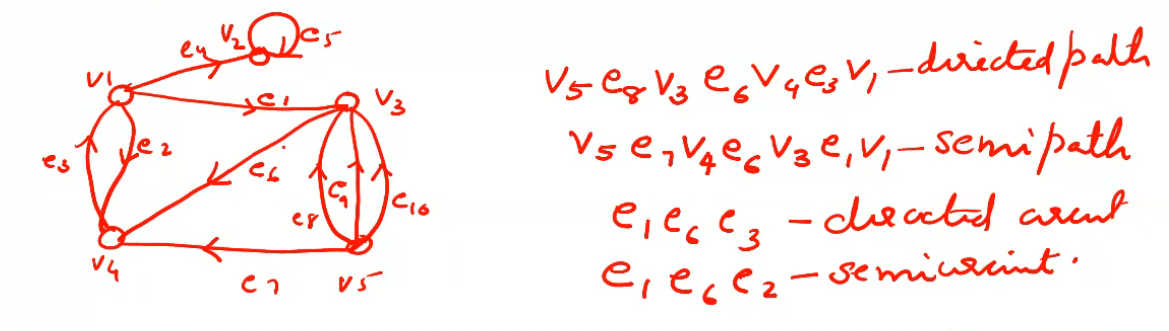 v2 e5
e4
v1
e1 v3
e3 e2
e6
e9
e8 e10
v4
e7 v5
v5 e8 v3 e6 v4 e3 v1 – directed path
v5 e7 v4 e6 v3 e1 v1 – semi path
e1 e6 e3 – directed circuit
e1 e6 e2 – semicircuit.